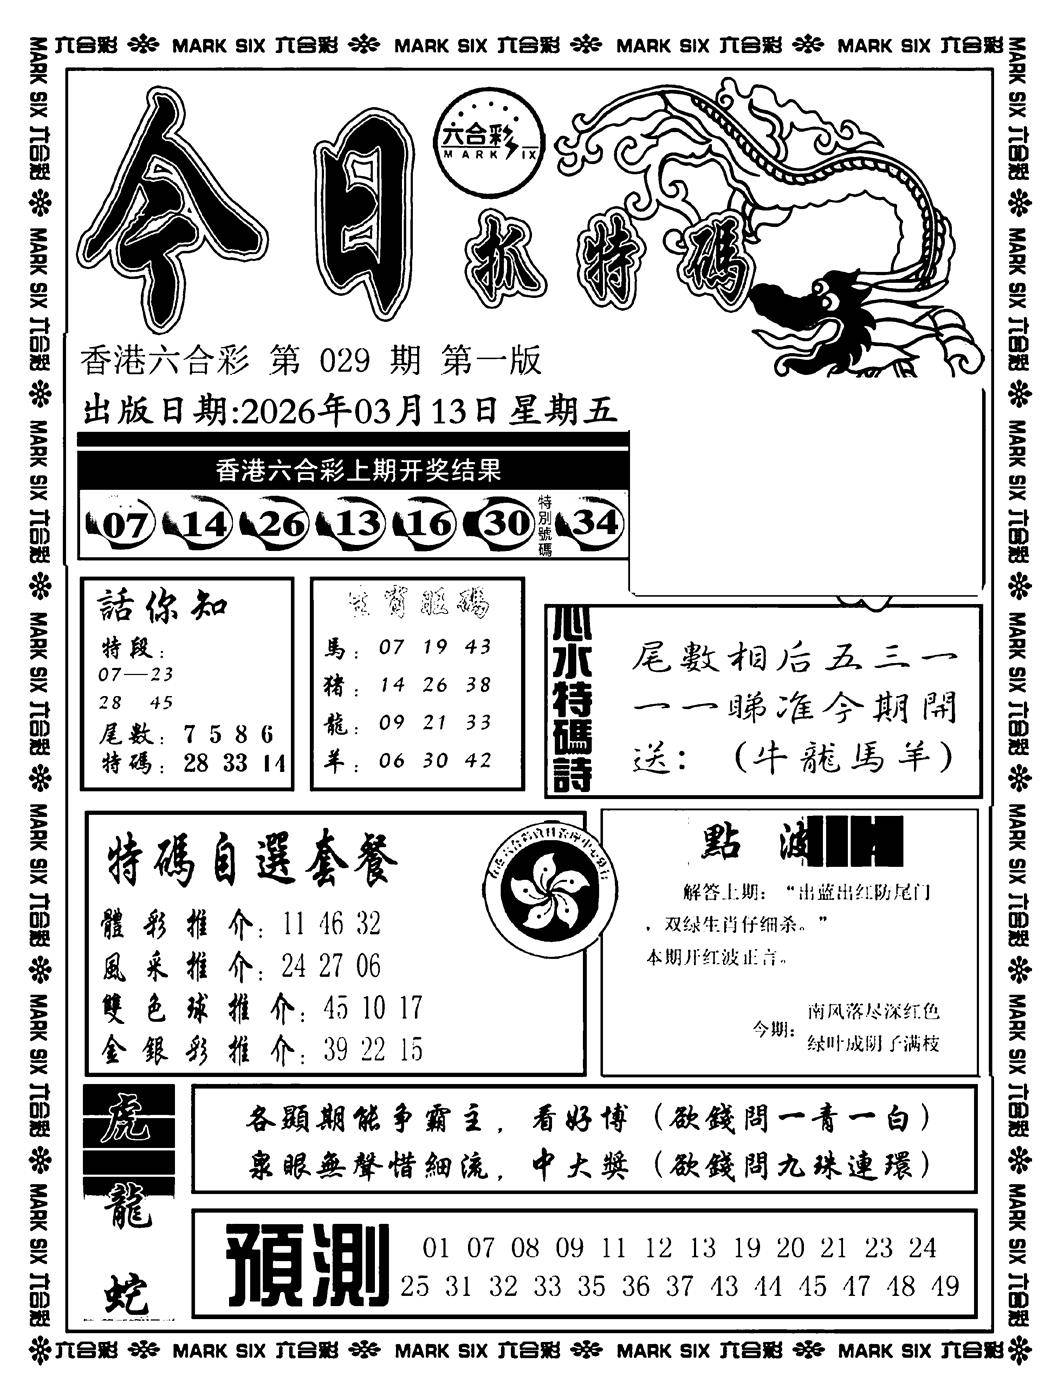 六合彩 MARK SIX 六合彩 MARK SIX 六合彩 MARK SIX 六合彩 MARK SIX 六合彩
六合彩
MARK SIX
今日
抓特碼
香港六合彩 第 029 期 第一版
出版日期:2026年03月13日星期五
香港六合彩上期开奖结果
07 14 26 13 16 30 特別號碼 34
話你知
特段：
07—23
28 45
尾数：7 5 8 6
特碼：28 33 14
馬：07 19 43
猪：14 26 38
龍：09 21 33
羊：06 30 42
心水特碼詩
尾數相后五三一
一一睇准今期開
送：（牛龍馬羊）
特碼自選套餐
體彩推介：11 46 32
風采推介：24 27 06
雙色球推介：45 10 17
金銀彩推介：39 22 15
點波
解答上期：“出蓝出红防尾门
，双绿生肖仔细杀。”
本期开红波正言。
今期：
南风落尽深红色
绿叶成阴子满枝
虎
龍
蛇
各顯期能争霸主，看好博（欲錢問一青一白）
泉眼無聲惜細流，中大獎（欲錢問九珠連環）
預測
01 07 08 09 11 12 13 19 20 21 23 24
25 31 32 33 35 36 37 43 44 45 47 48 49
六合彩 MARK SIX 六合彩 MARK SIX 六合彩 MARK SIX 六合彩 MARK SIX 六合彩